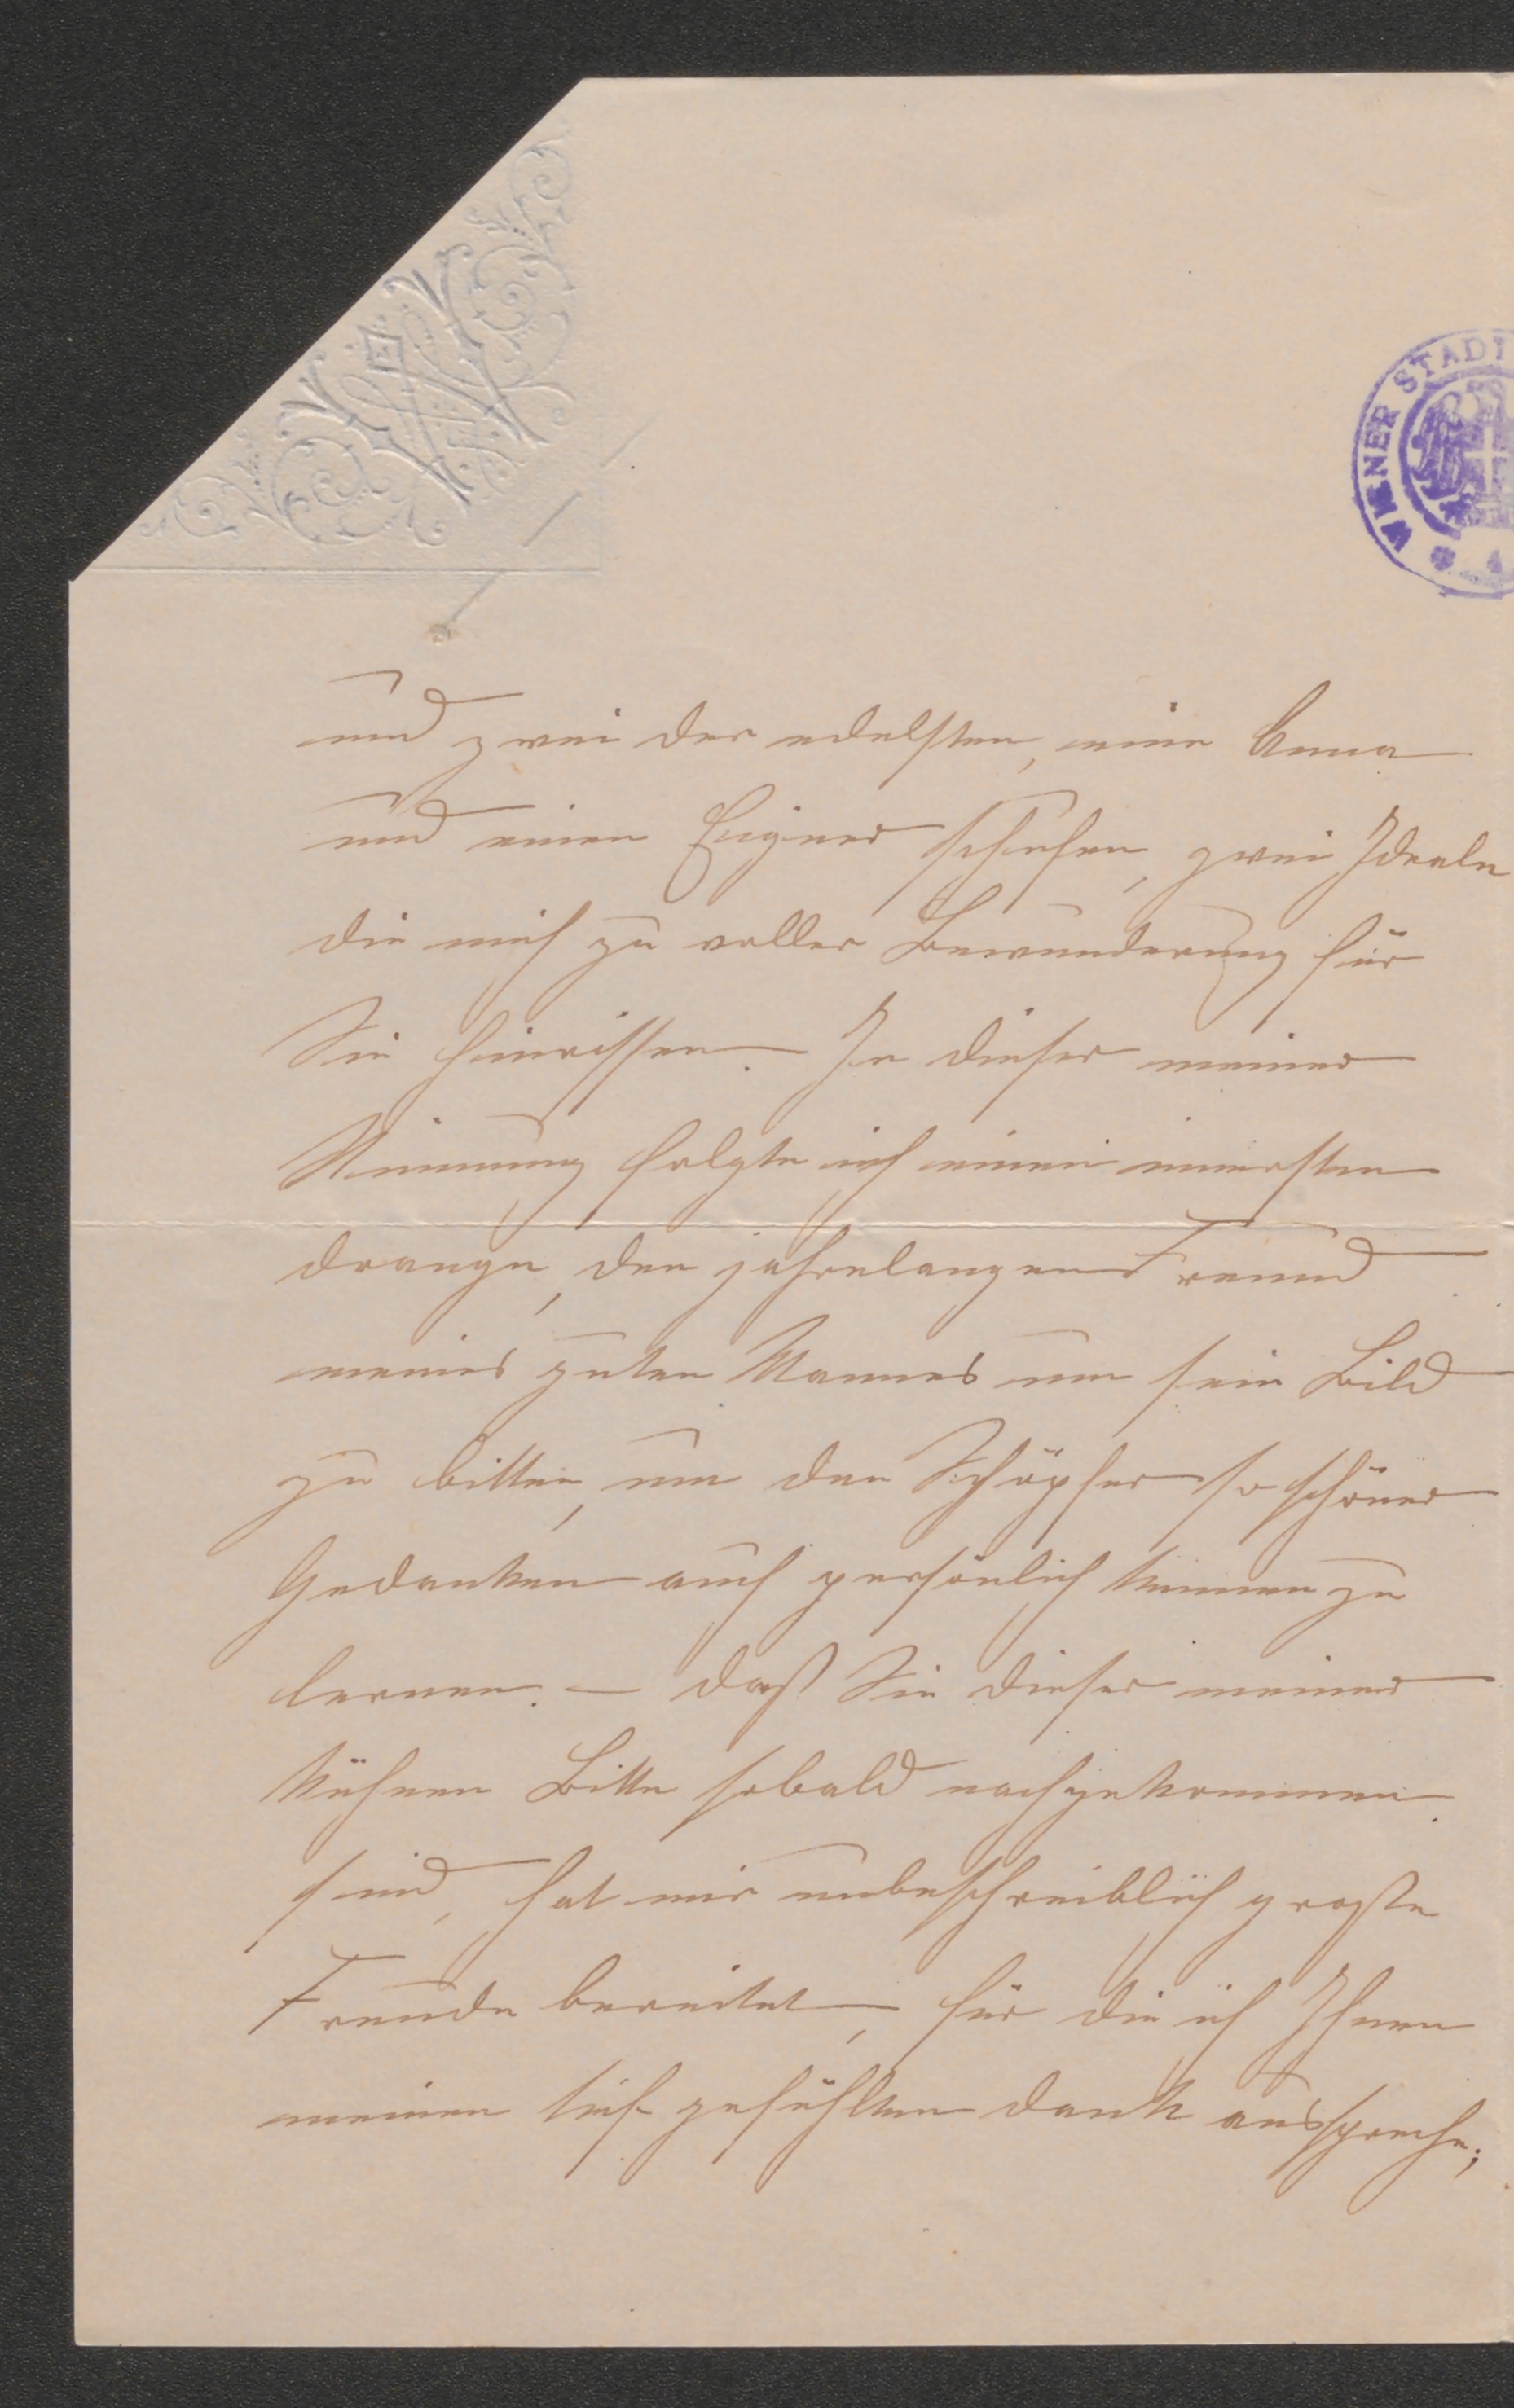 WIENER STADT
und zwei der edelsten, eine Anna
und einen Eugner schufen, zwei Ideale
die mich zu voller Bewunderung für
Sie hinrissen. In dieser meiner
Stimmung folgte ich einem innersten
drange, den jahrelangen Freund
meines guten Mannes um sein Bild
zu bitten, um den Schöpfer so schöner
Gedanken auch persönlich kennen zu
lernen. – daß Sie dieser meiner
kühnen Bitte sobald nachgekommen
sind, hat mir unbeschreiblich große
Freude bereitet, für die ich Ihnen
meinen tief gefühlten dank ausspreche;